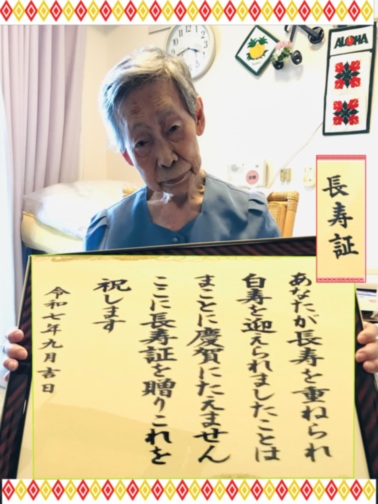 ALOHA
長寿証
あなたが長寿を重ねられ
白寿を迎えられましたことは
まことに慶賀にたえません
ここに長寿証を贈りこれを
祝します
令和七年九月吉日